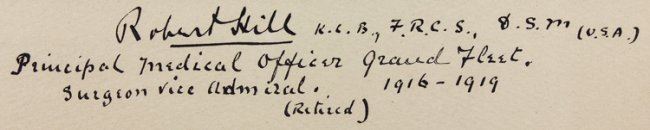 Robert Hill K.C.B., F.R.C.S., D.S.M (U.S.A.)
Principal Medical Officer Grand Fleet.
Surgeon Vice Admiral. 1916-1919
(Retired)